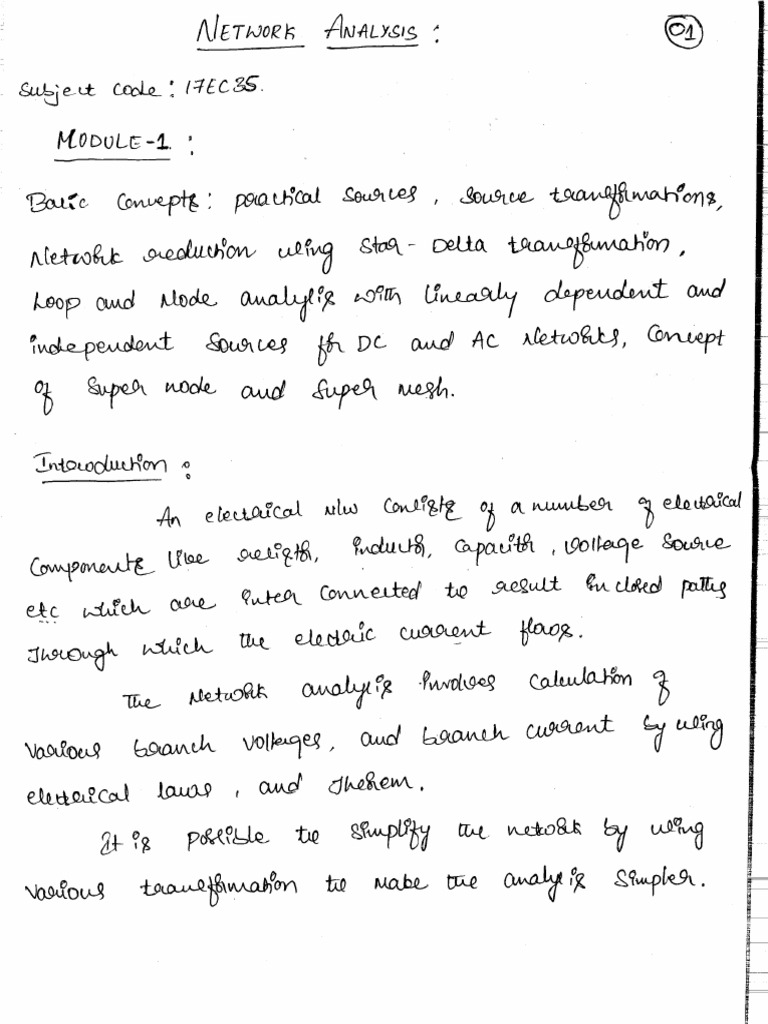 NETWORK ANALYSIS :
01
Subject code : 17EC35.
MODULE-1 :
Basic Concepts : practical sources, source transformations,
Network reduction using Star-Delta transformation,
Loop and Node analysis with linearly dependent and
independent Sources for DC and AC Networks, Concept
of Super node and Super mesh.
Introduction :
An electrical n/w consists of a number of electrical
Components like resistor, inductor, capacitor, voltage source
etc which are inter connected to result in closed paths
through which the electric current flows.
The Network analysis involves calculation of
various branch voltages, and branch current by using
electrical laws, and Theorem.
It is possible to simplify the network by using
various transformation to make the analysis simpler.